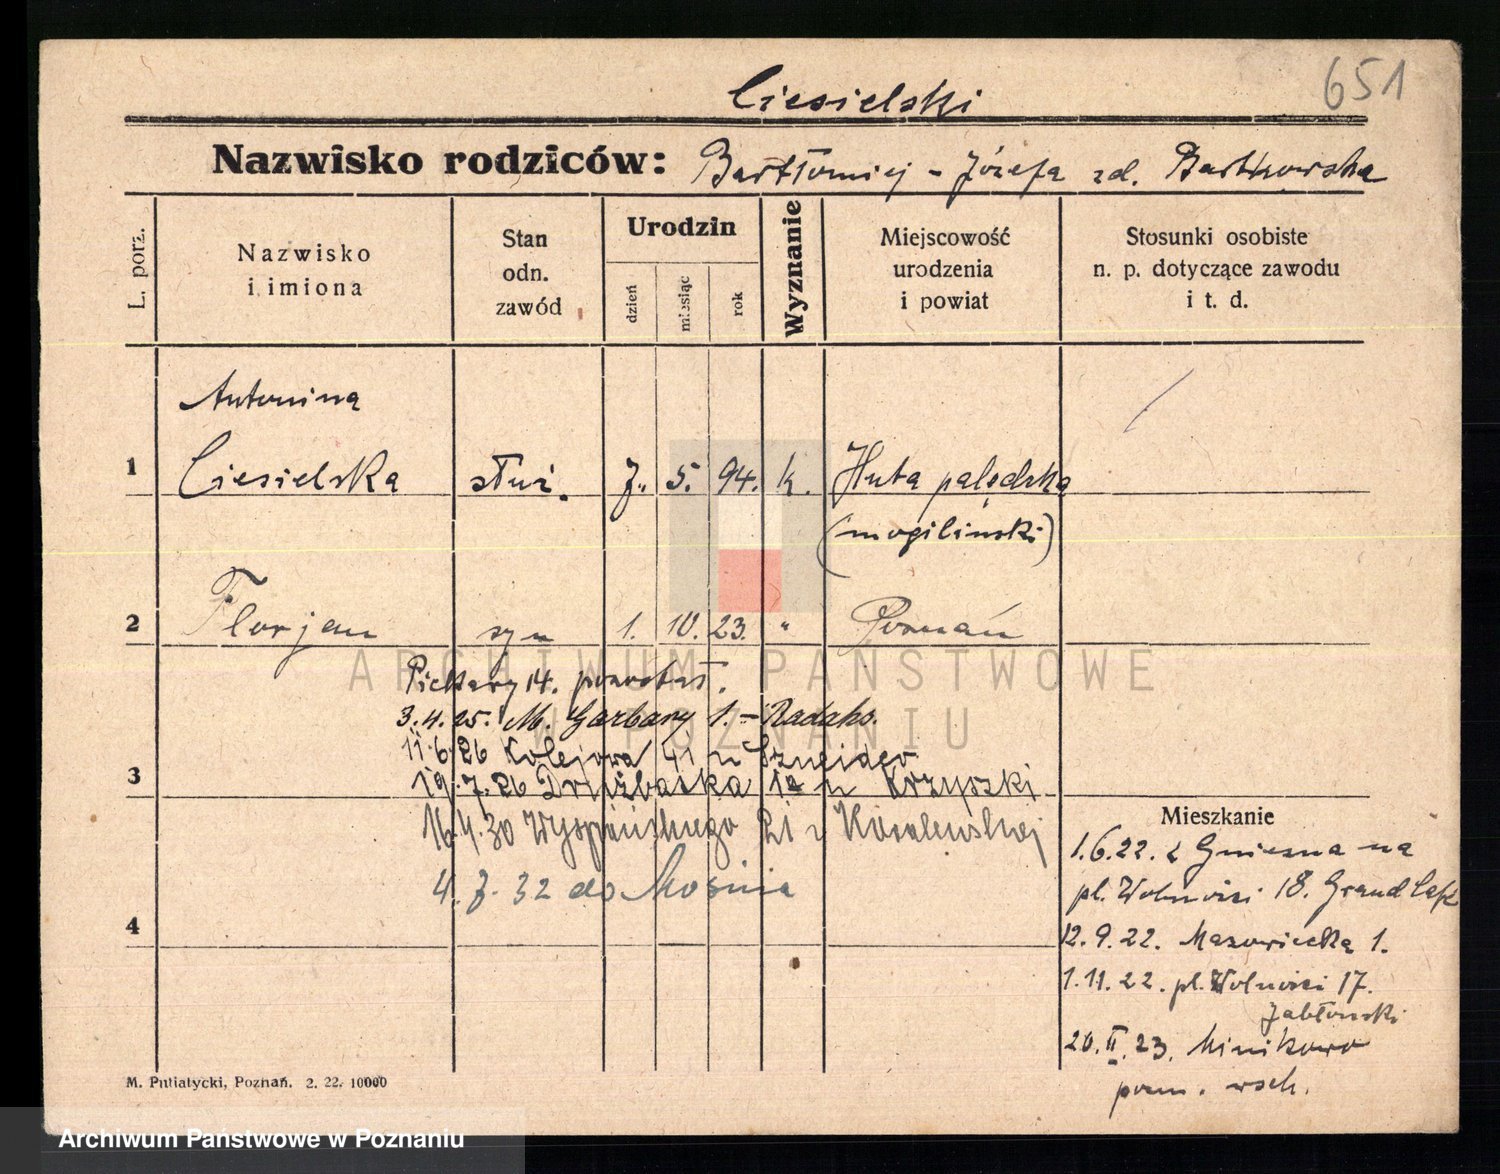 651
Ciesielski
Nazwisko rodziców: Bartłomiej - Józefa zd. Bartkowska
L. porz.
Nazwisko
i imiona
Stan
odn.
zawód
Urodzin
dzień
miesiąc
rok
Wyznanie
Miejscowość
urodzenia
i powiat
Stosunki osobiste
n. p. dotyczące zawodu
i t. d.
Antonina
1 Ciesielska służ. 7. 5. 94. k. Huta palędzka
(mogilinski)
2 Florjan syn 1. 10. 23. " Poznań
ARCHIWUM PAŃSTWOWE
W POZNANIU
Piekary 14.
3.4.25. M. Garbary 1. -
11.6.26 Kolejowa 41 u Sznejder
3
19.7.26 Drużbacka 1a u Krzyszki
16.4.30 Wyspiańskiego 21 u
4.7.32 do Mosina
4
Mieszkanie
1.6.22. z Gniezna na
pl. Wolności 18. Grand
12.9.22. Mazowiecka 1.
1.11.22. pl. Wolności 17.
Jabłonski
20.II.23. Minikowo
pozn. wsch.
M. Putiatycki, Poznań. 2. 22. 10000
Archiwum Państwowe w Poznaniu